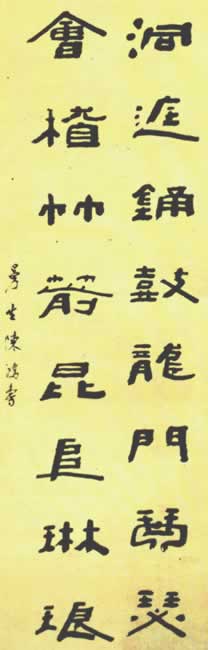 洞庭銿鼓龍門琴瑟
會稽竹箭昆琳琅
曼生陳鴻壽